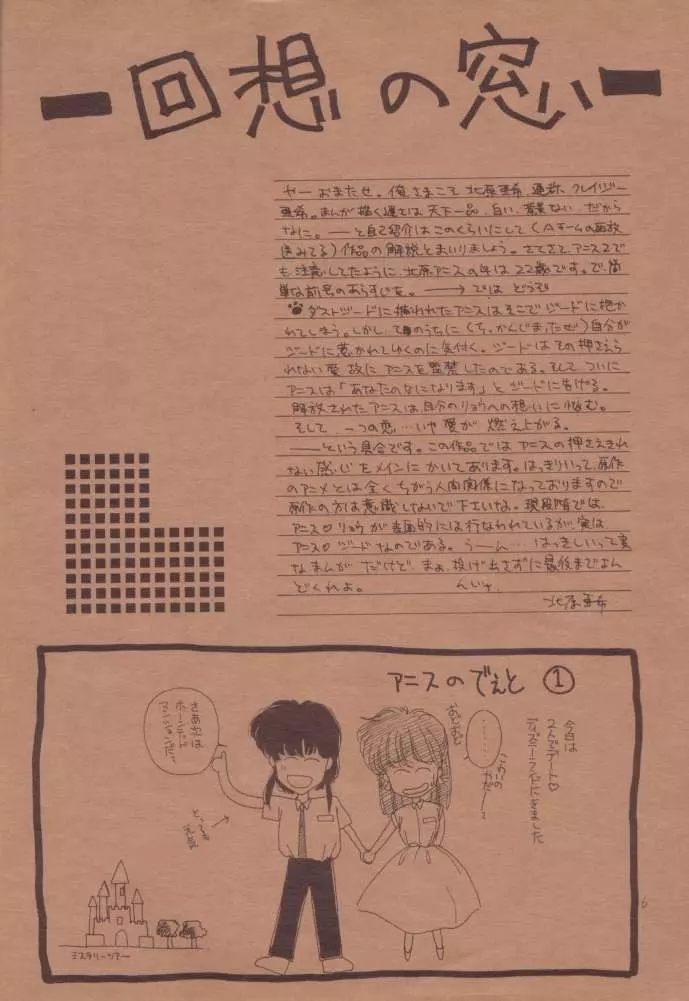 回想の窓
ヤー おまたせ。俺さまこそ 北原亜希、通称、クレイジー
亜希。まんが描く速さは 天下一品、白い、背景ない、だから
なに。――と自己紹介はこのくらいにして(Aチームの再放
送みてる)作品の解説とまいりましょう。さてさて、アニス2で
も注意してたように、北原アニスの年は22歳です。で、簡
単な前号のあらすじを。――→ では どうぞ
ダストジードに捕われたアニスはそこでジードに抱か
れてしまう。しかし、そのうちに(ち、かんじまったぜ)自分が
ジードに惹かれてゆくのに気付く。ジードはその押さえら
れない愛故にアニスを監禁したのである。そして ついに
アニスは「あなたのなにになります」とジードに告げる。
解放されたアニスは、自分のリョウへの想いに悩む。
そして 一つの恋…いや愛が 燃え上がる。
――という具合です。この作品では アニスの押さえきれ
ない感心をメインにかいてあります。はっきりいって、原作
のアニメとは全くちがう人間関係になっておりますので
原作の方は意識しないで下さいな。現段階では、
アニス♡リョウが表面的には行なわれているが、実は
アニス♡ジードなのである。うーん…はっきしいって変
なまんが だけど、まぁ、投げ出さずに最後までよん
どくれよ。
北原亜希
アニスのでぇと ①
今日は
2人でデート♡
ディズニーランドにきました
おどおど
………
さあ次は
ホーンテッド
マンションだ!
とっても
元気
ミステリーツアー
6